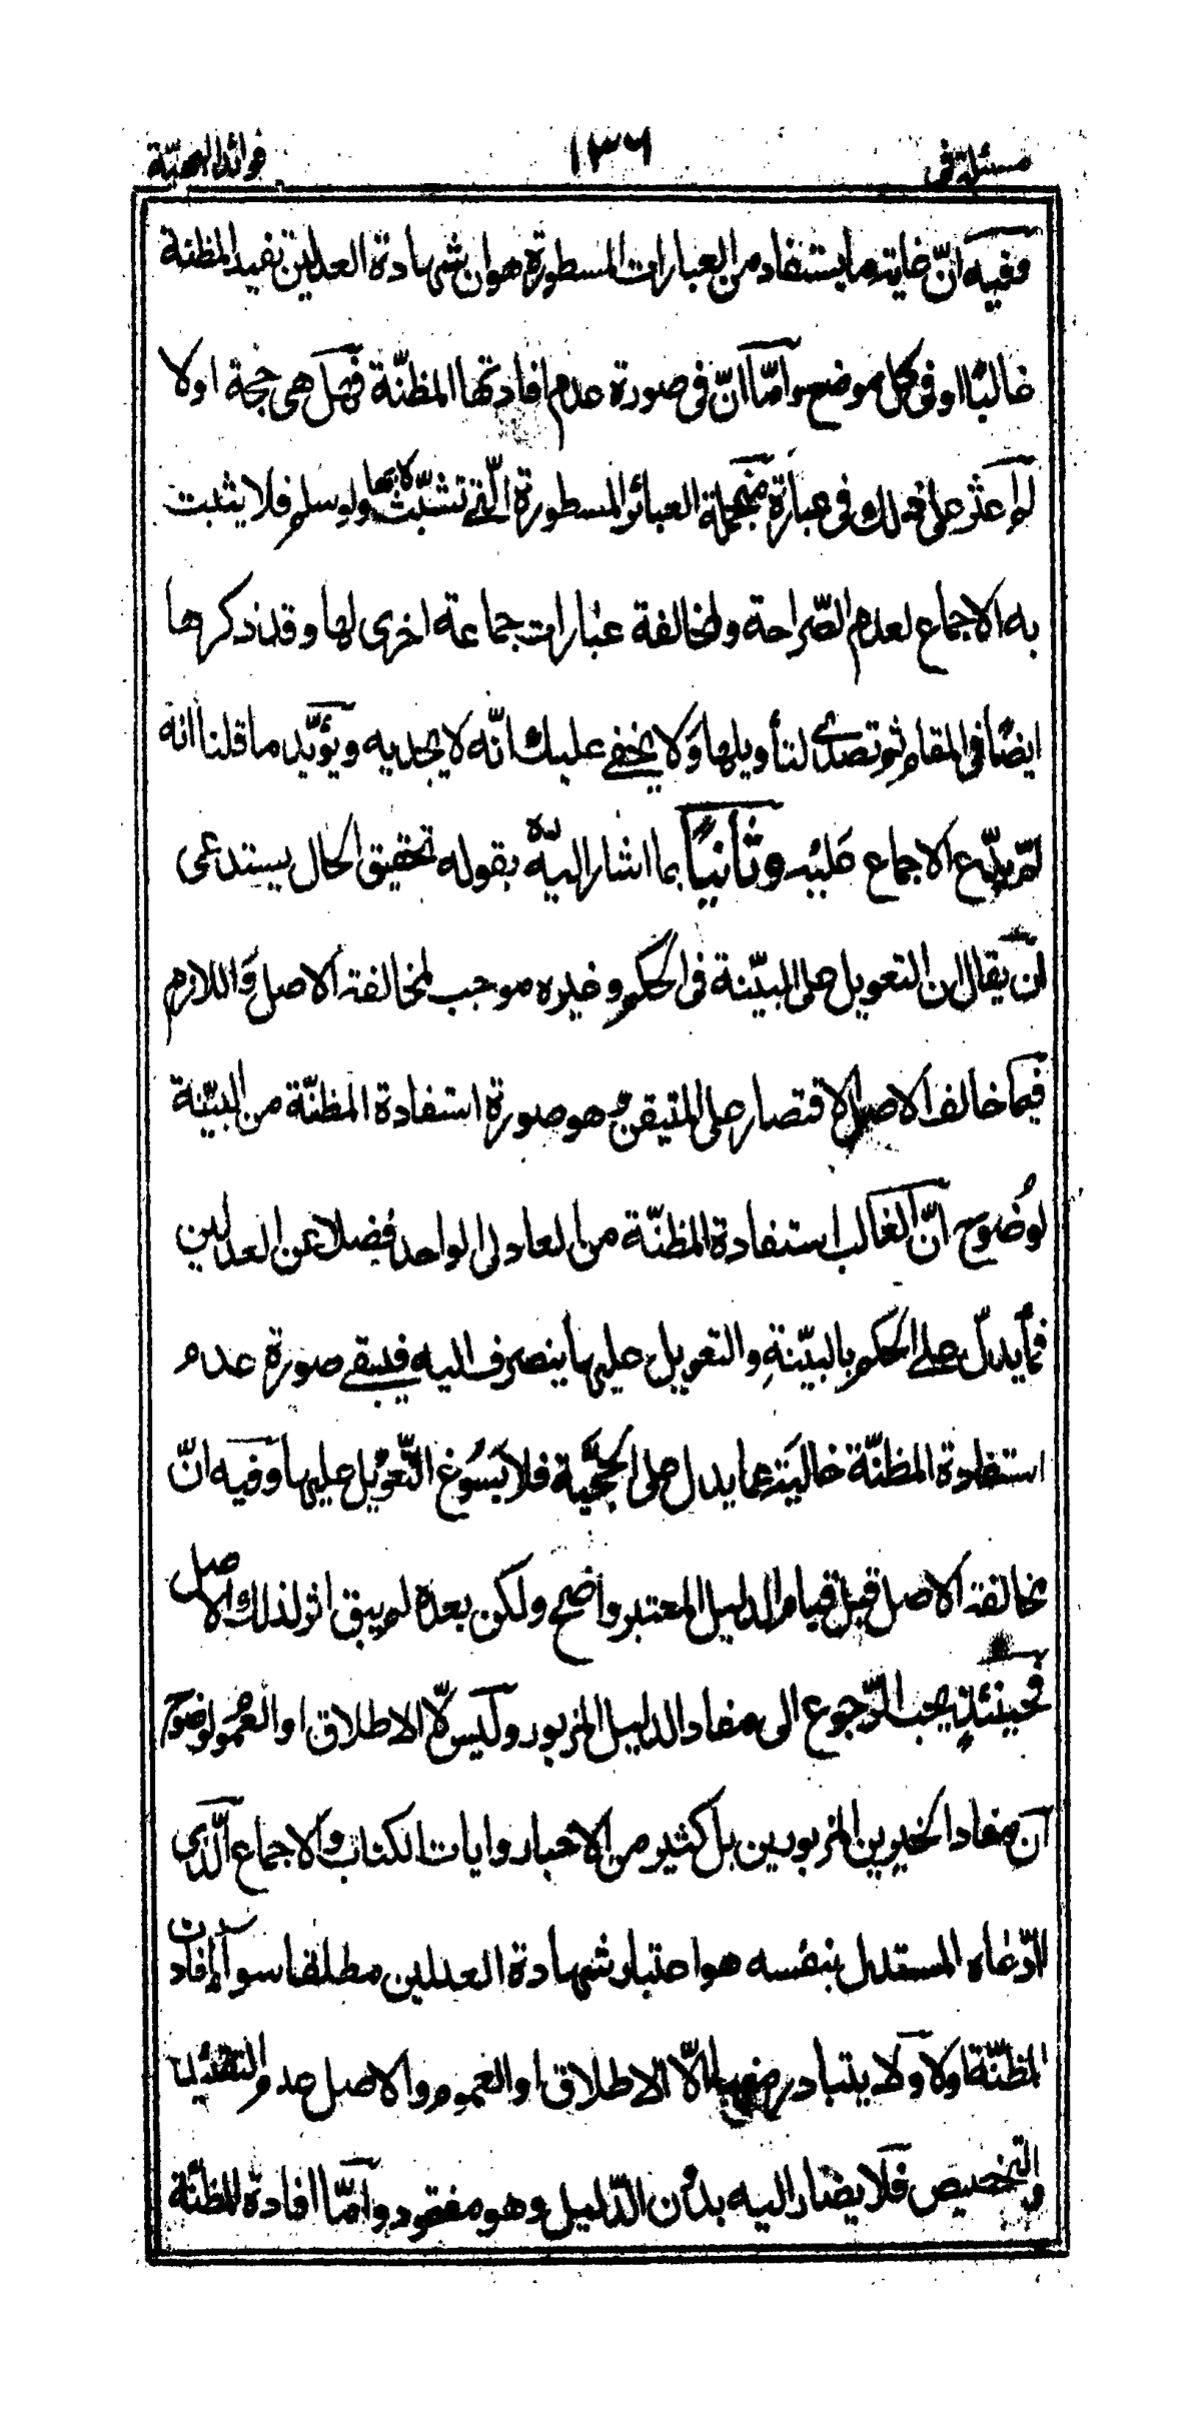 مسئلة فى
١٣٦
فوائد البهيّة
وفيه انّ غاية ما يستفاد من العبارات المسطورة هو ان شهادة العدلين تفيد المظنة
غالبًا او فى كل موضع وامّا انّ فى صورة عدم افادتها المظنّة فهل هى حجة اولا
لم اعثر على ذلك فى عبارة من جملة العبائر المسطورة الّتى تشبّث بها ولو سلم فلا يثبت
به الاجماع لعدم الصّراحة ولمخالفة عبارات جماعة اخرى لها وقد ذكرها
ايضًا فى المقام ثم تصدّى لتأويلها ولا يخفى عليك انّه لا يجديه ويؤيّد ما قلنا انه
لم يدّع الاجماع عليه وثانيًا بما اشار اليه بقوله تحقيق الحال يستدعى
ان يقال ان التعويل على البيّنة فى الحكم وغيره موجب لمخالفة الاصل واللازم
فيما خالف الاصل الاقتصار على المتيقن وهو صورة استفادة المظنّة من البيّنة
لوضوح انّ الغالب استفادة المظنّة من العادل الواحد فضلا عن العدلين
فما يدلّ على الحكم بالبيّنة والتعويل عليها ينصرف اليه فيبقى صورة عدم
استفادة المظنّة خالية عما يدل على الحجّيّة فلا يسوغ التّعويل عليها وفيه انّ
مخالفة الاصل قبل قيام الدليل المعتبر واضح ولكن بعده لم يبق اثر لذلك الاصل
فحينئذٍ يجب الرّجوع الى مفاد الدليل المزبور وليس الّا الاطلاق او العموم لوضوح
ان مفاد الخبرين المزبورين بل كثير من الاخبار وايات الكتاب والاجماع الّذى
ادّعاه المستدل بنفسه هو اعتبار شهادة العدلين مطلقا سواء افادت
المظنّة اولا ولا يتبادر منها الّا الاطلاق او العموم والاصل عدم التقييد
والتخصيص فلا يصار اليه بدون الدّليل وهو مفقود وامّا افادة المظنّة